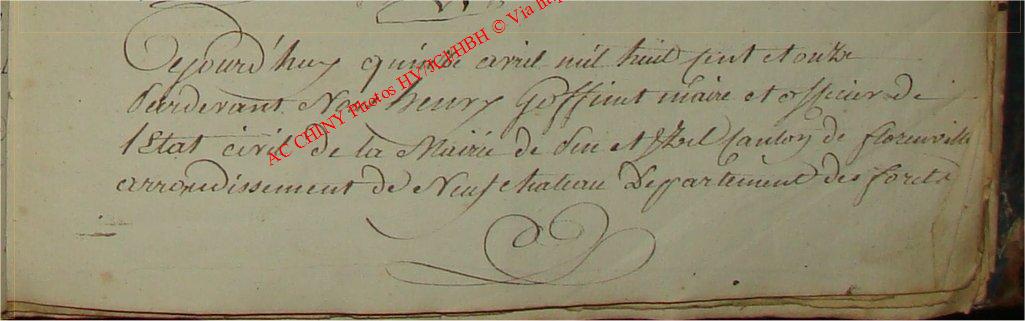 Cejourd'huy quinze avril mil huit cent et onze
Pardevant Nous henry Goffinet maire et officier de
l'Etat civil de la Mairie de et Izel Canton de florenville
arrondissement de Neufchateau Departement des forets
AC CHINY Photos HY/JCI/HBH © Via